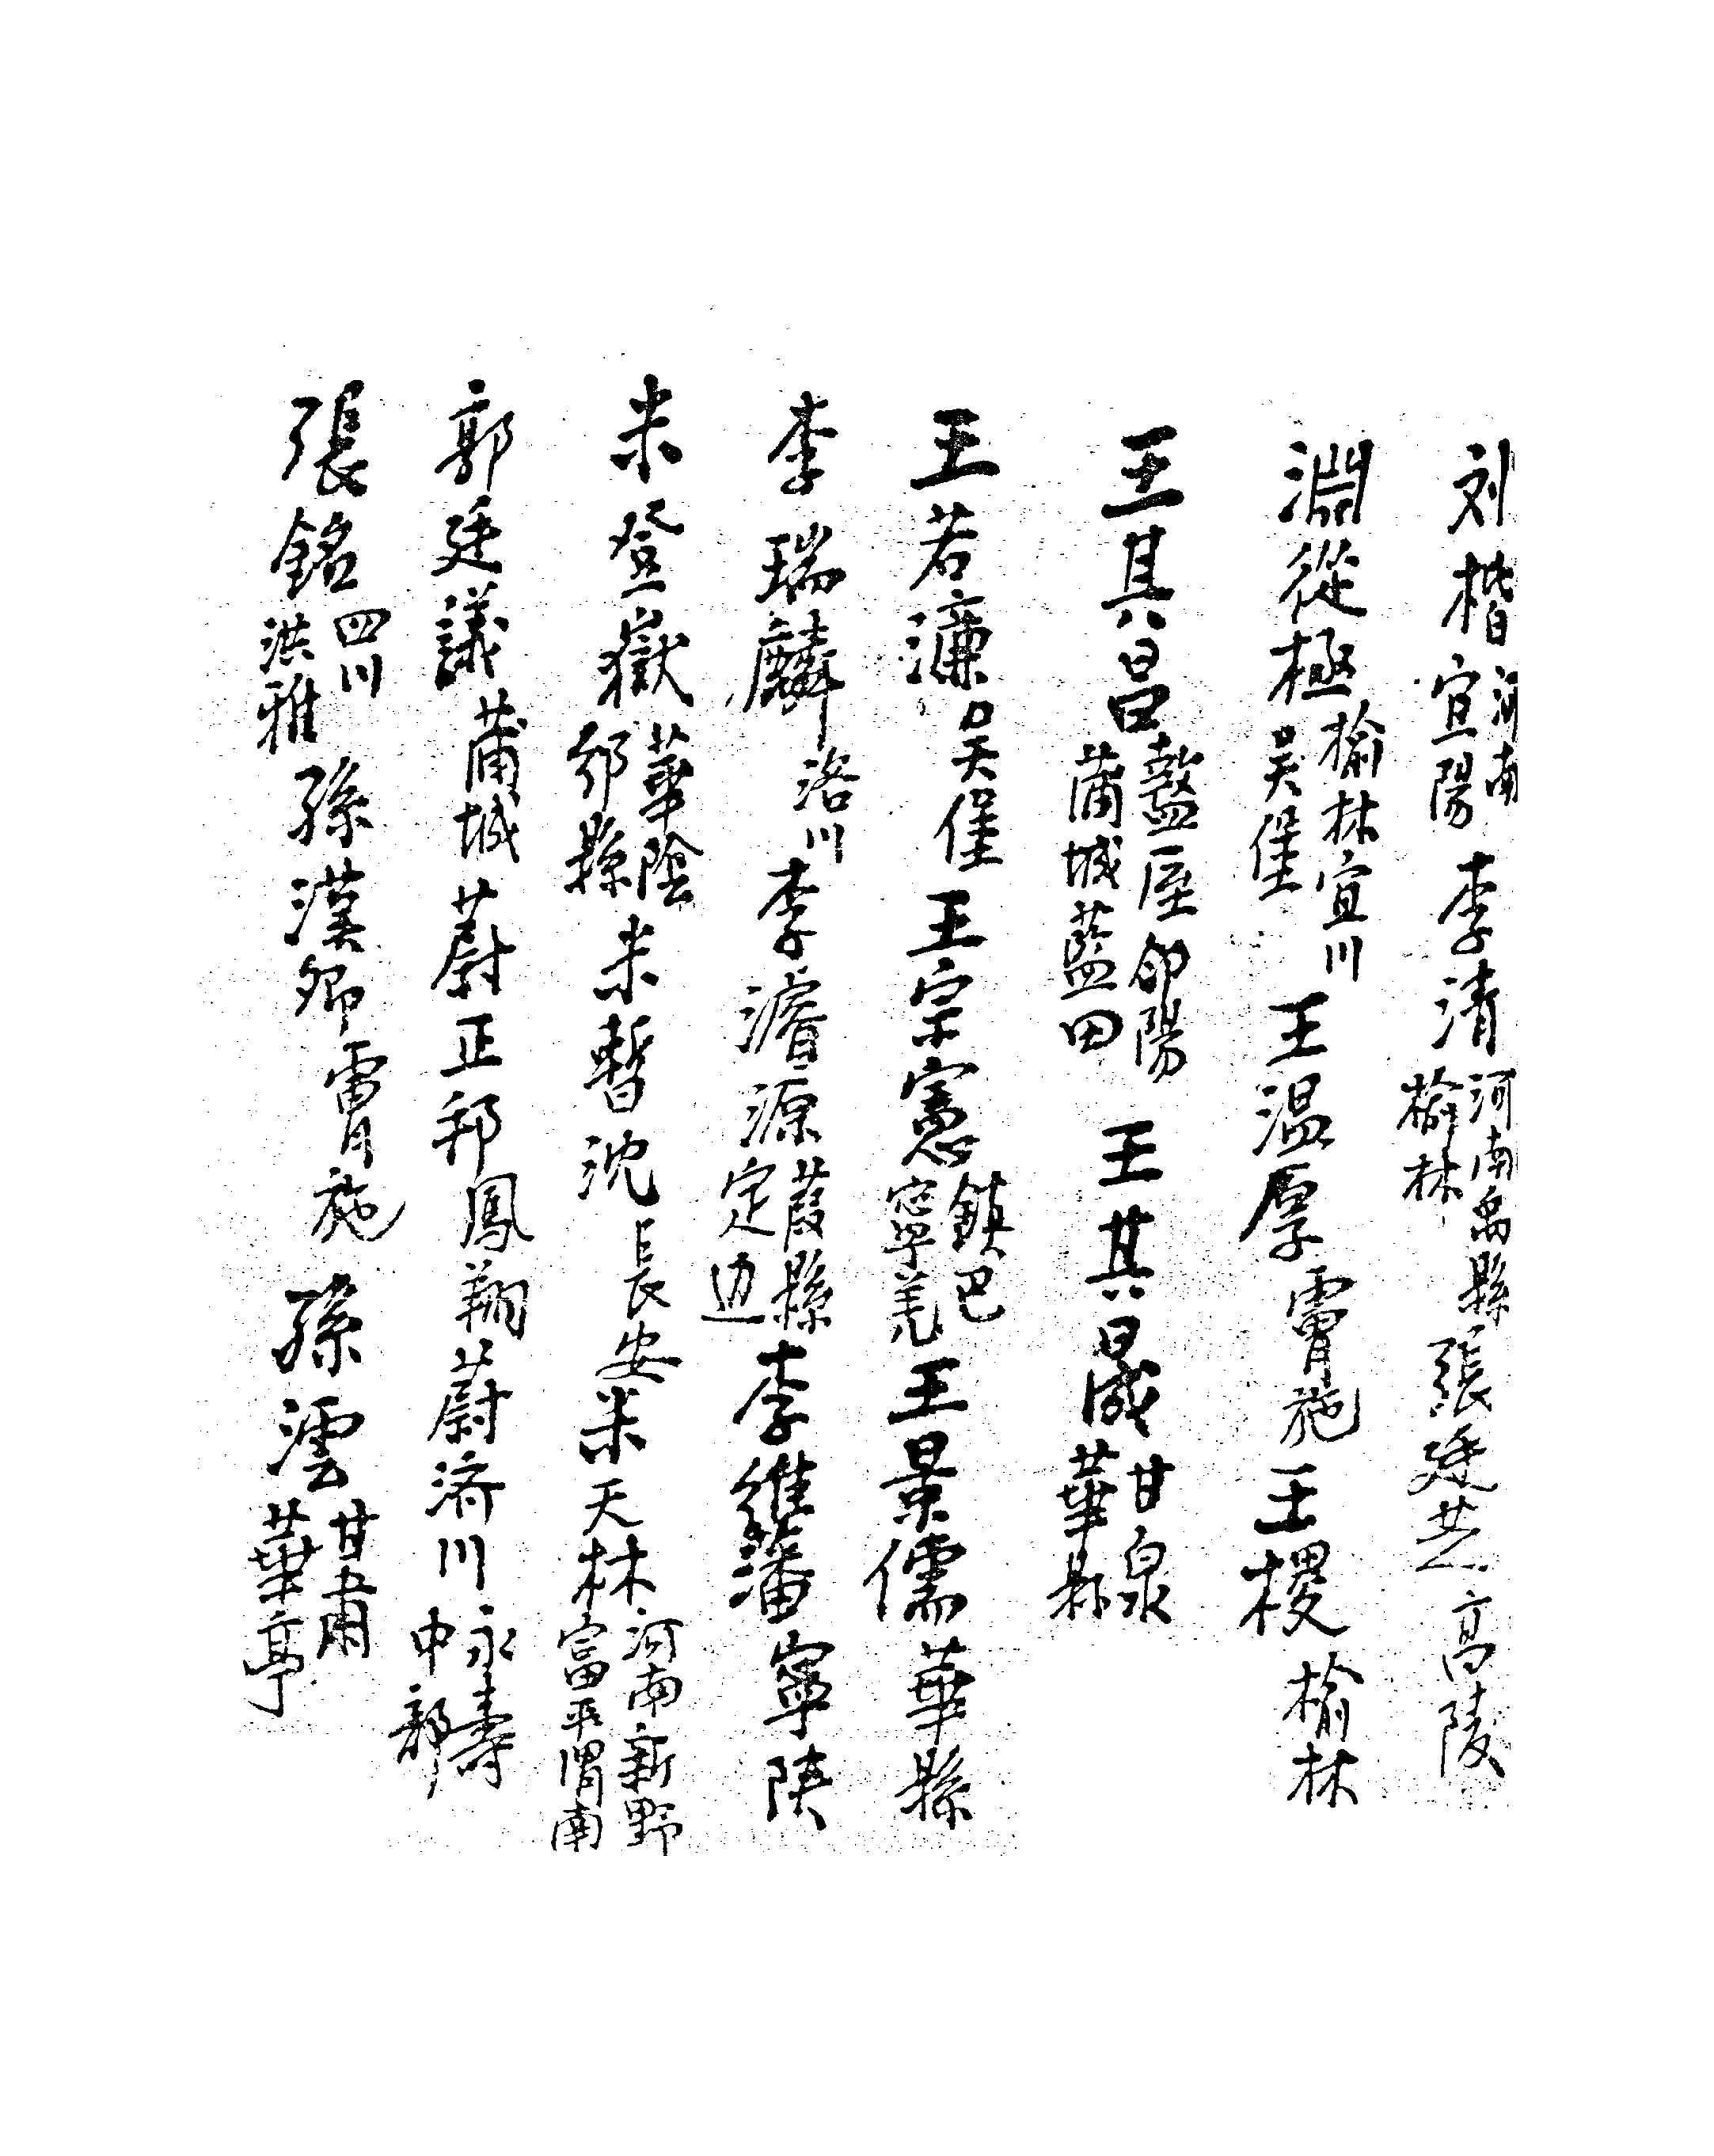 刘楷河南宜陽李清河南禹縣榆林張廷芝高陵
淵從極榆林宜川吴堡王温厚膚施王稷榆林
王其昌盩厔郃陽蒲城藍田王其晟甘泉華县
王若濂吴堡王宗憲鎮巴寧羌王景儒華縣
李瑞麟洛川李濬源葭縣定边李維藩寧陕
米登嶽華陰邠縣米暫沈長安米天林河南新野富平渭南
郭廷議蒲城蔚正邦鳳翔蔚济川永壽中部
張銘四川洪雅孫漢卿膚施孫澐甘肅華亭